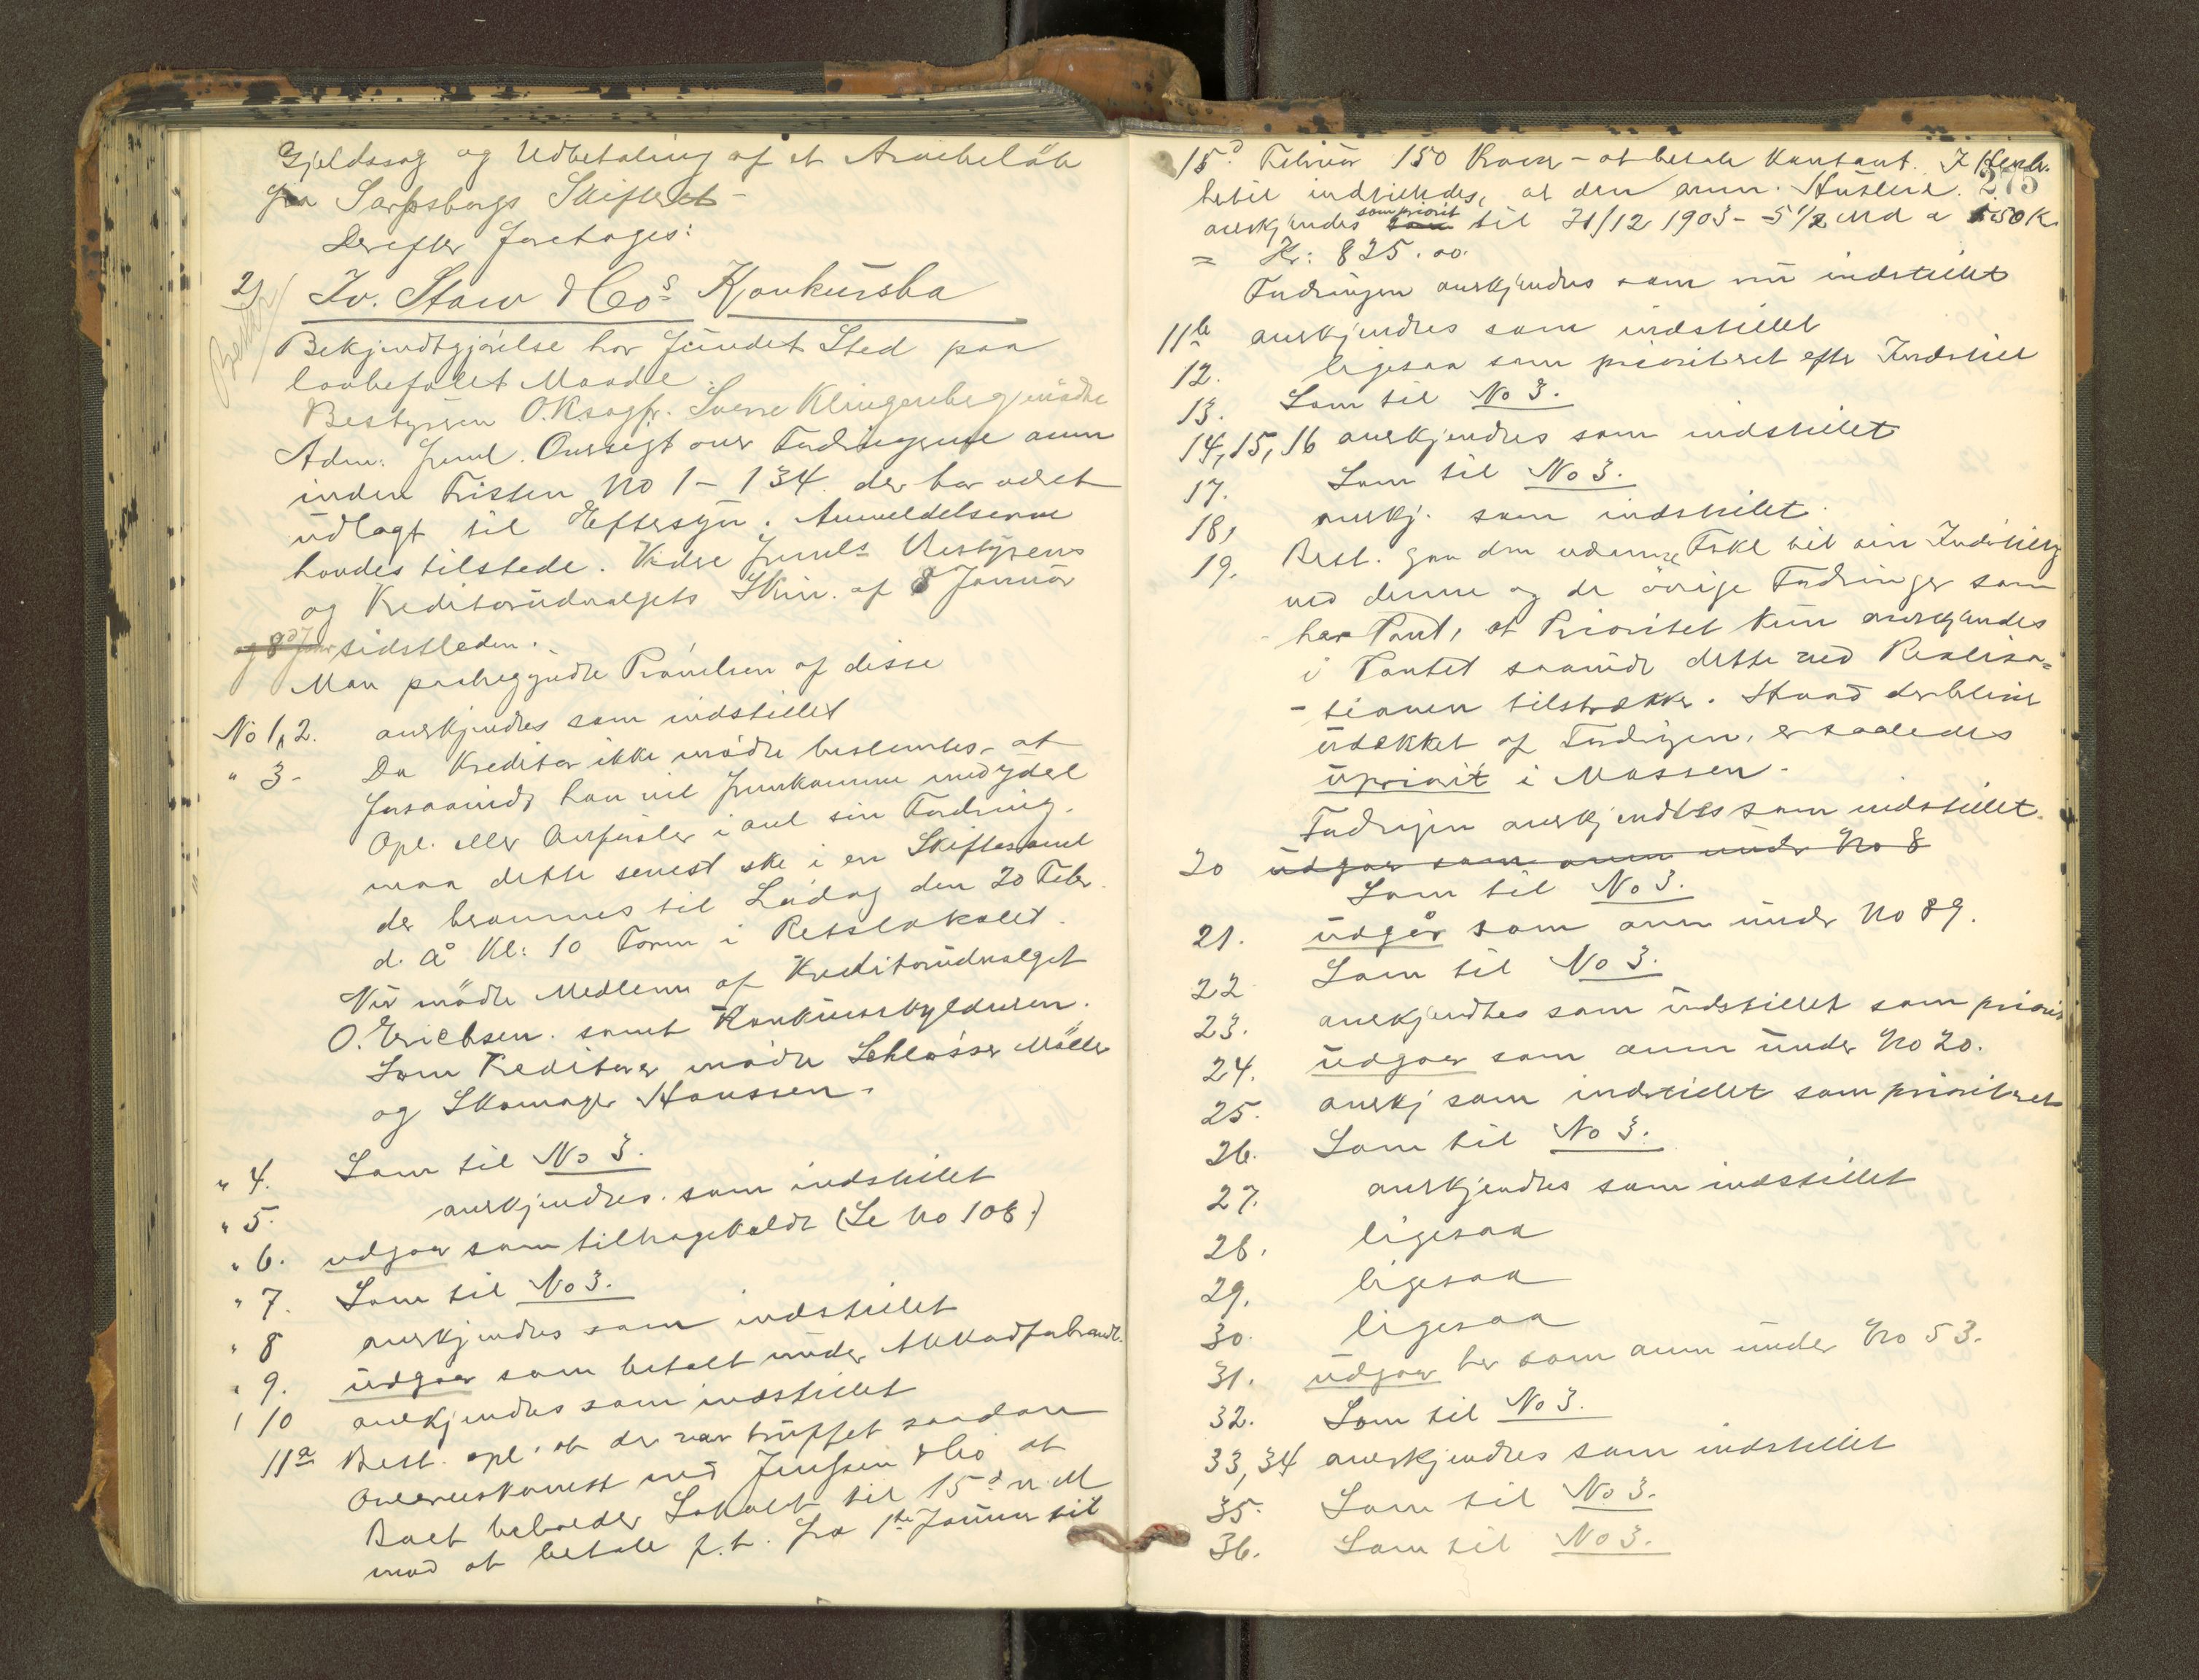 Gjeldssag og Udbetaling af et Arvebeløb
fra Sarpsborgs Skifteret -
Derefter foretages:
2) Iv. Staw & Co.s Konkursbo
Bekjendtgjørelse har fundet Sted paa
lovbefalet Maade.
Bestyreren O.R.sagfr. Sverre Klingenberg mødte
Adm. freml. Oversigt over Fordringerne anm
inden Fristen No 1 - 134. der har været
udlagt til Eftersyn. Anmeldelserne
havdes tilstede. Vidre freml. Bestyrerens
og Kreditorudvalgets Skriv. af 8 Januar
og 8d Janr sidstleden.
Man paabegyndte Prøvelsen af disse
No 1, 2. anerkjendtes som indstillet
" 3- Da Kreditor ikke mødte bestemtes, at
forsaavidt han vil fremkomme med ydel
Opl. eller Anførsler i anl sin Fordring.
maa dette senest ske i en Skiftesaml
der berammes til Lørdag den 20 Febr.
d. Å Kl: 10 Form i Retslokalet.
Nu mødte Medlem af Kreditorudvalget
O. Erichsen. samt Konkursskyldneren.
Som Kreditorer mødte Schløsser Møller
og Skomager Hanssen.
" 4. Som til No 3.
" 5. anerkjendtes. som indstillet
" 6. udgaar som tilbagekaldt (Se No 108.)
" 7. Som til No 3.
" 8 anerkjendtes som indstillet
" 9. udgaar som betalt under Akkordforhandl.
" 10 anerkjendtes som indstillet
11a Best. opl. at der var truffet saadan
Overenskomst med Jenssen & Co at
Boet beholder Lokalet til 15d n. M
mod at betale f. t. fra 1ste Januar til
275
15d Februar 150 Kroner - at betale kontant. I Henh.
hertil indstilledes, at den anm. Husleie.
anerkjendes som priorit til 31/12 1903 - 5 1/2 Md a 150 K
= Kr: 825.00.
Fordringen anerkjendtes som nu indstillet
11b anerkjendtes som indstillet
12. ligesaa som prioriteret efter Indstill
13. Som til No 3.
14, 15, 16 anerkjendtes som indstillet
17. Som til No 3.
18, anerkj. som indstillet.
19. Best. gav den udtømme Forkl til sin Indstilling
ved denne og de øvrige Fordringer som
har Pant, at Prioritet kun anerkjendes
i Pantet saavidt dette ved Realisa=
tionen tilstrækker. Hvad der bliver
udækket af Fordringen, er saaledes
upriorit i Massen.
Fordringen anerkjendtes som indstillet.
20 udgaar som anm under No 8
Som til No 3.
21. udgår som anm under No 89.
22 Som til No 3.
23. anerkjendtes som indstillet som priorit
24. udgaar som anm under No 20.
25. anerkj som indstillet som prioriteret
26. Som til No 3.
27. anerkjendtes som indstillet
28. ligesaa
29. ligesaa
30. ligesaa
31. udgaar her som anm under No 53.
32. Som til No 3.
33, 34 anerkjendtes som indstillet
35. Som til No 3.
36. Som til No 3.